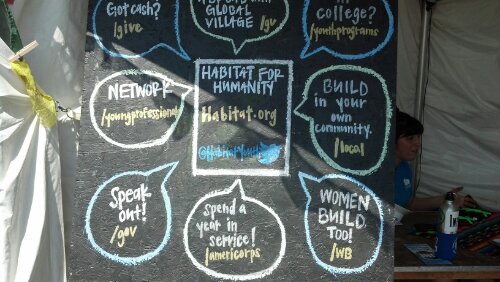 Got cash?
/give
GLOBAL
VILLAGE /gv
college?
/youthprograms
NETWORK
/youngprofessional
HABITAT FOR
HUMANITY
Habitat.org
@HabitatYouth
BUILD
in your
own
community.
/local
Speak
out!
/gov
Spend a
year in
service!
/americorps
WOMEN
BUILD,
TOO!
/WB